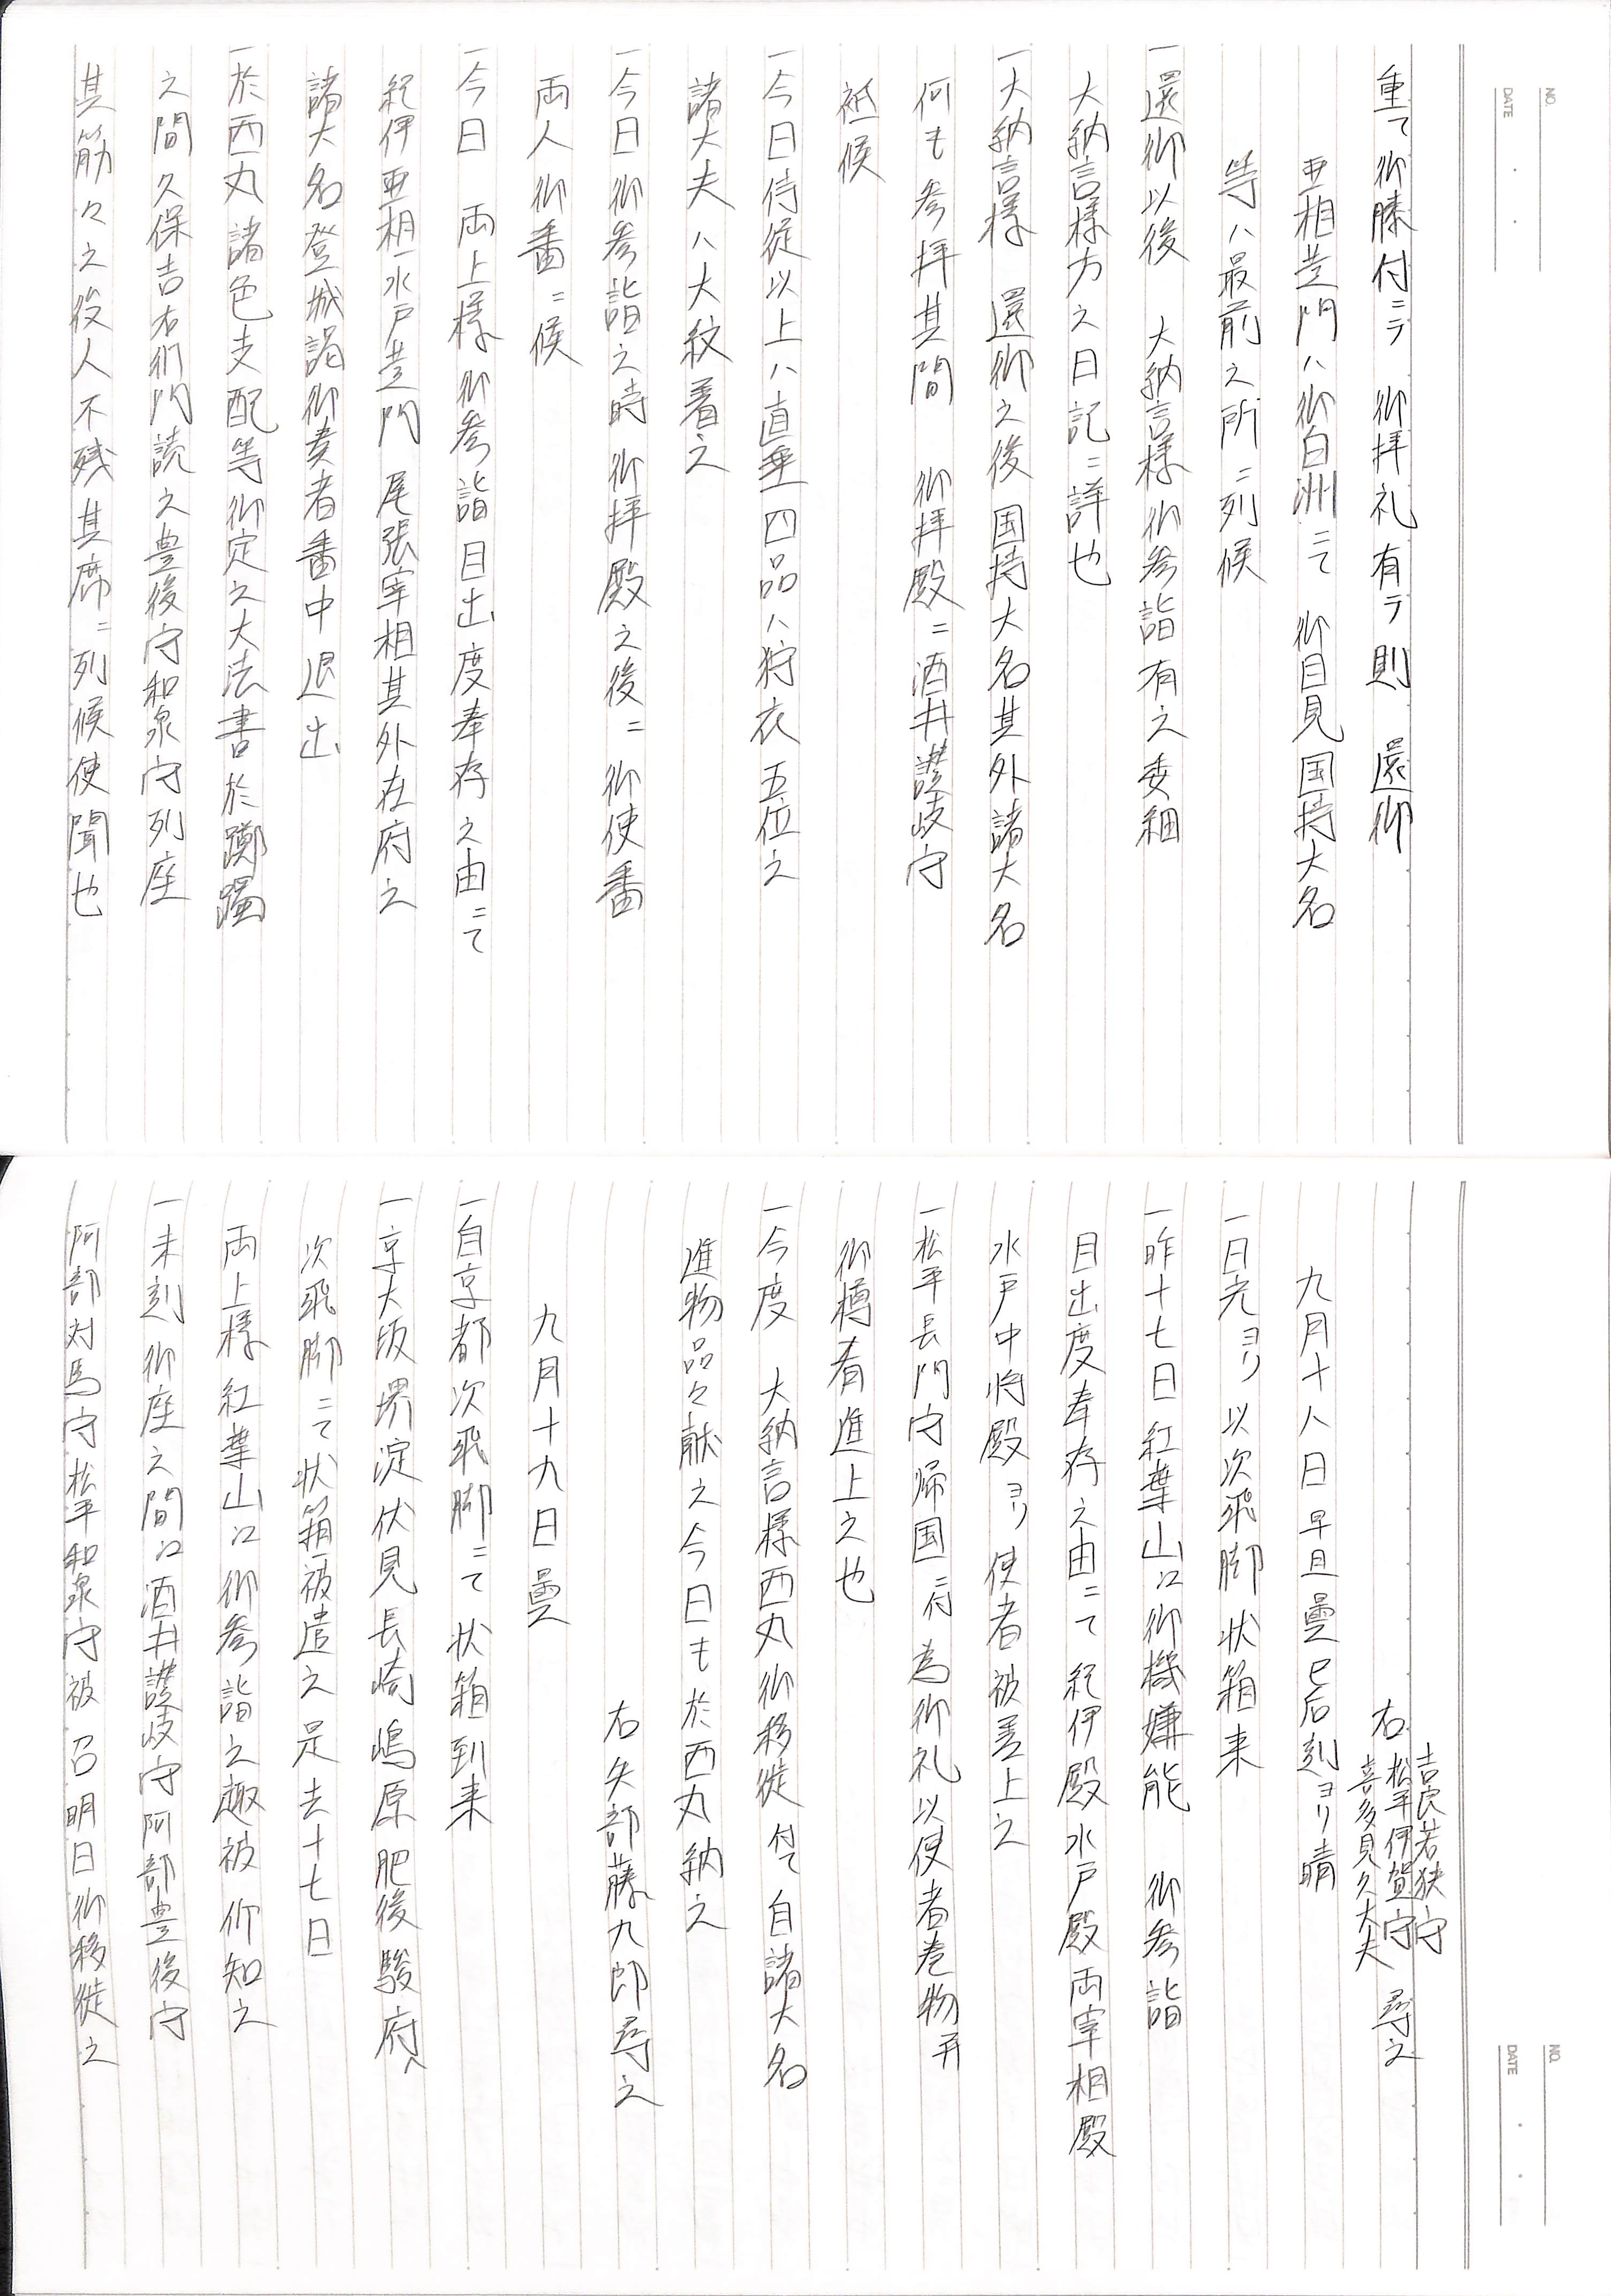 NO.
DATE
重て御膝付ニテ 御拝礼有テ則 還御
亜相黄門ハ御白洲ニて 御目見国持大名
等ハ最前之所ニ列候
一還御以後 大納言様御参詣有之委細
大納言様方之日記ニ詳也
一大納言様 還御之後国持大名其外諸大名
何も参拝其間 御拝殿ニ酒井讃岐守
祗候
一今日侍従以上ハ直垂四品ハ狩衣五位之
諸大夫ハ大紋着之
一今日御参詣之時御拝殿之後ニ御使番
両人御番ニ候
一今日 両上様御参詣目出度奉存之由ニて
紀伊亜相水戸黄門尾張宰相其外在府之
諸大名登城謁御奏者番中退出
一於西丸諸色支配等御定之大法書於躑躅
之間久保吉右衛門読之豊後守和泉守列座
其筋々之役人不残其席ニ列候使聞也
NO.
DATE
吉良若狭守
右松平伊賀守 尋之
喜多見久大夫
九月十八日早旦曇巳后刻ヨリ晴
一日光ヨリ以次飛脚状箱来
一昨十七日紅葉山江御機嫌能 御参詣
目出度奉存之由ニて紀伊殿水戸殿両宰相殿
水戸中将殿ヨリ使者被差上之
一松平長門守帰国ニ付為御礼以使者巻物并
御樽肴進上之也
一今度 大納言様西丸御移徙付て自諸大名
進物品々献之今日も於西丸納之
右矢部藤九郎尋之
九月十九日曇
一自京都次飛脚ニて状箱到来
一京大坂堺淀伏見長崎嶋原肥後駿府へ
次飛脚ニて状箱被遣之是去十七日
両上様紅葉山江御参詣之趣被仰知之
一未刻御座之間江酒井讃岐守阿部豊後守
阿部対馬守松平和泉守被召明日御移徙之